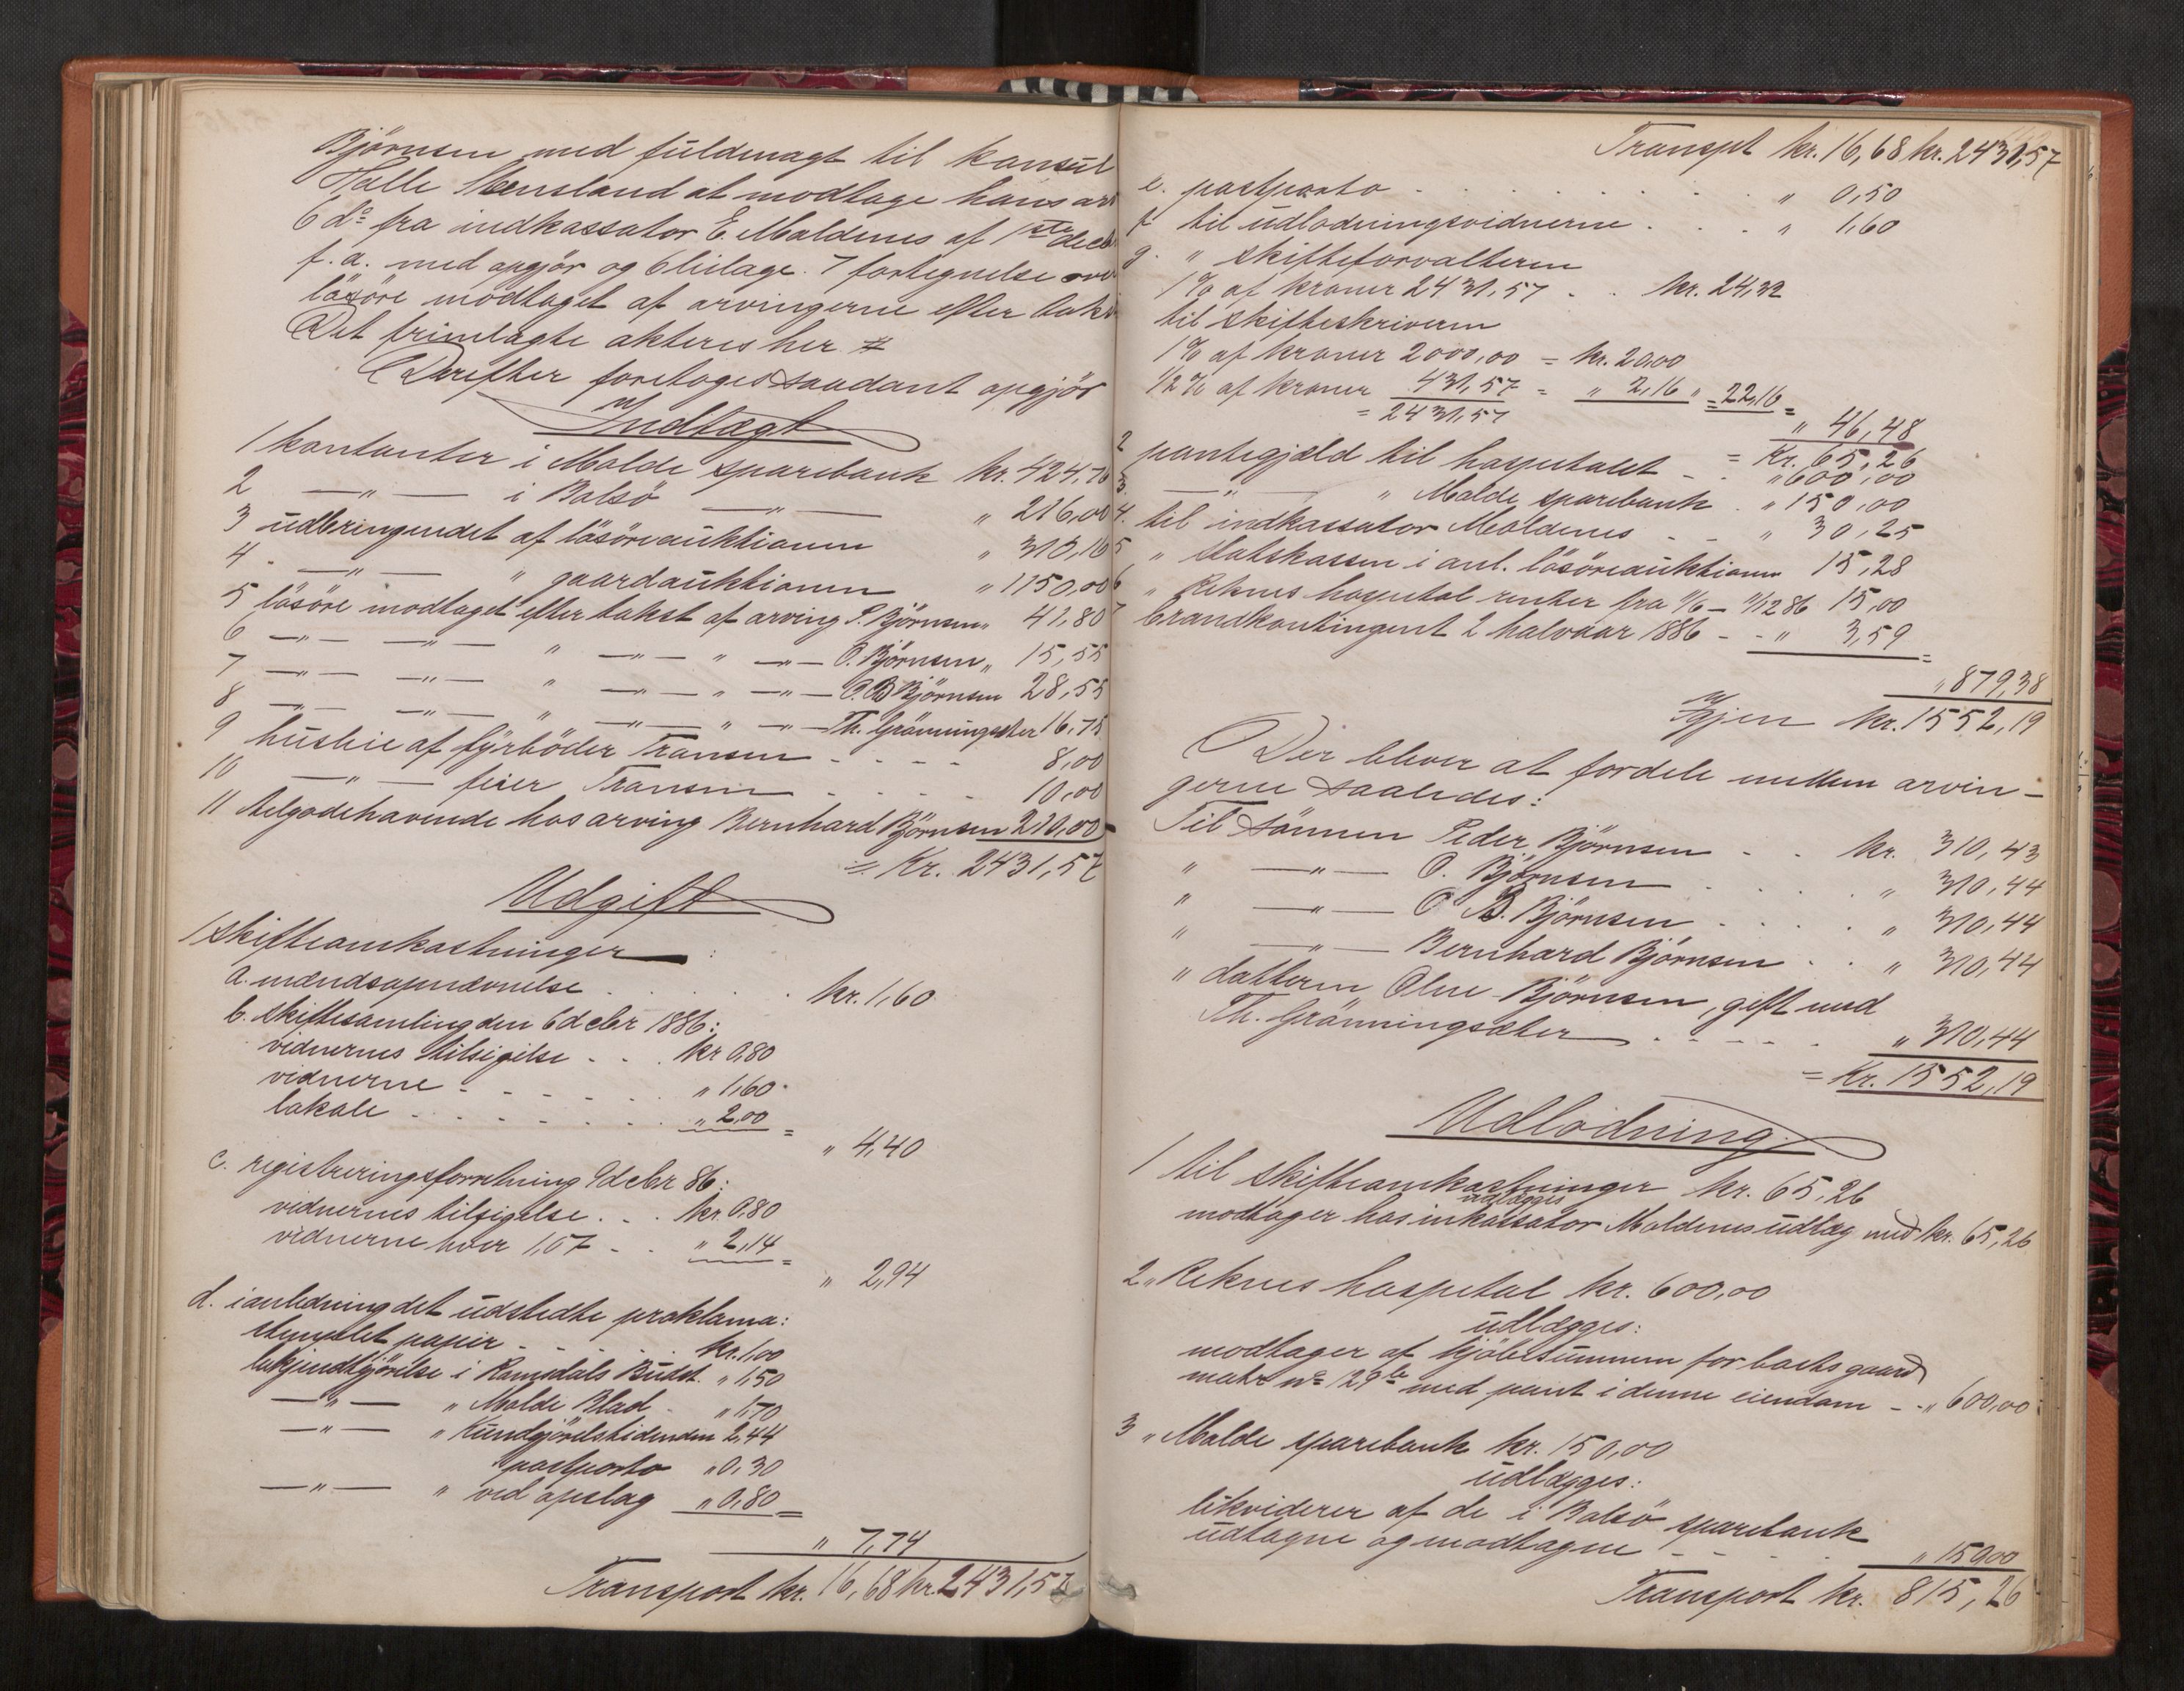 Björnsen med fuldmagt til konsul
Halle at modtage hans arv
6 do fra indkassator E. Moldenes af 1ste decbr
f. a. med opgjör og 6 bilage. 7 fortegnelse over
lösöre modtaget af arvingerne efter takst
Det fremlagte akteres her. #
Derefter foretoges saadant opgjör
Indtægt
1 kontanter i Molde sparebank kr. 424,76
2 —"— i Bolsö —"— " 216,00
3 udbringendet af lösöreauktionen " 310,16
4 —"— " gaardauktionen " 1150,00
5 lösöre modtaget efter takst af arving P. Björnsen " 41,80
6 —"— —"— " —"— " —"— O. Björnsen " 15,55
7 —"— —"— " —"— " —"— O. B Björnsen 28,55
8 —"— —"— " —"— " —"— Th. Grönningsæter 16,75
9 husleie af fyrböder Transen - - - - 8,00
10 —"— feier Transen - - - - 10,00
11 tilgodehavende hos arving Bernhard Björnsen 210,00
= Kr. 2431,57
Udgift
1 skifteomkostninger :
a. mændsopnævnelse . . . . . kr. 1,60
b. skiftesamling den 6 decbr 1886:
vidnernes tilsigelse - . . kr 0,80
vidnerne - - - - - . " 1,60
lokale - - - - - . . " 2,00 =
" 4,40
c. registreringsforretning 9 decbr 86:
vidnernes tilsigelse . . . kr 0,80
vidnerne hver 1,07 - . . " 2,14 =
" 2,94
d. i anledning det udstedte proklama:
stemplet papir - - - - . kr. 1,00
bekjendtgjörelse i Romsdals Budst. " 1,50
—"— " Molde Blad - " 1,70
—"— " Kundgjörelsestidenden 2,44
postporto " 0,30
—"— " ved opslag " 0,80 =
" 7,74
Transport kr. 16,68 kr. 2431,57
Transpt kr. 16,68 kr. 2431,57
e. postporto . . . . . . . . " 0,50
f. til udlodningsvidnerne . . . " 1,60
g. " skifteforvalteren
1% af kroner 2431,57 . . kr. 24,32
til skifteskriveren
1% af kroner 2000,00 = kr. 20,00
1/2% af kroner 431,57 = " 2,16 " = 22,16 =
= 2431,57
" 46,48
= Kr. 65,26
2 pantegjæld til hospitalet - - " 600,00
3. —"— " Molde sparebank . " 150,00
4. til indkassator Moldenes - - " 30,25
5 " Statskassen i anl. lösöreauktionen 15,28
6 " Reknes hospital renter fra 11/6 - 11/12 86 15,00
7 brandkontingent 2 halvaar 1886 - - " 3,59 =
" 879,38
Igjen kr. 1552,19
Der bliver at fordele mellem arvin-
gerne saaledes:
Til sönnen Peder Björnsen - . kr. 310,43
" —"— O. Björnsen . . . . " 310,44
" —"— O B. Björnsen . . . . " 310,44
" —"— Bernhard Björnsen . . " 310,44
" datteren Oline Björnsen, gift med
Th. Grönningsæter . - - - . " 310,44
= Kr. 1552,19
Udlodning.
1 til skifteomkostninger kr. 65,26
udlægges
modtager hos inkassator Moldenes udlæg med kr. 65,26
2 " Reknes hospital kr. 600,00
udlægges:
modtager af kjöbesummen for boets gaard
matr no 129 med pant i denne eiendom - - " 600,00
3 " Molde sparebank kr. 150,00
udlægges:
likviderer af de i Bolsö sparebank
udtagne og modtagne - - - - " 150,00
Transport kr. 815,26